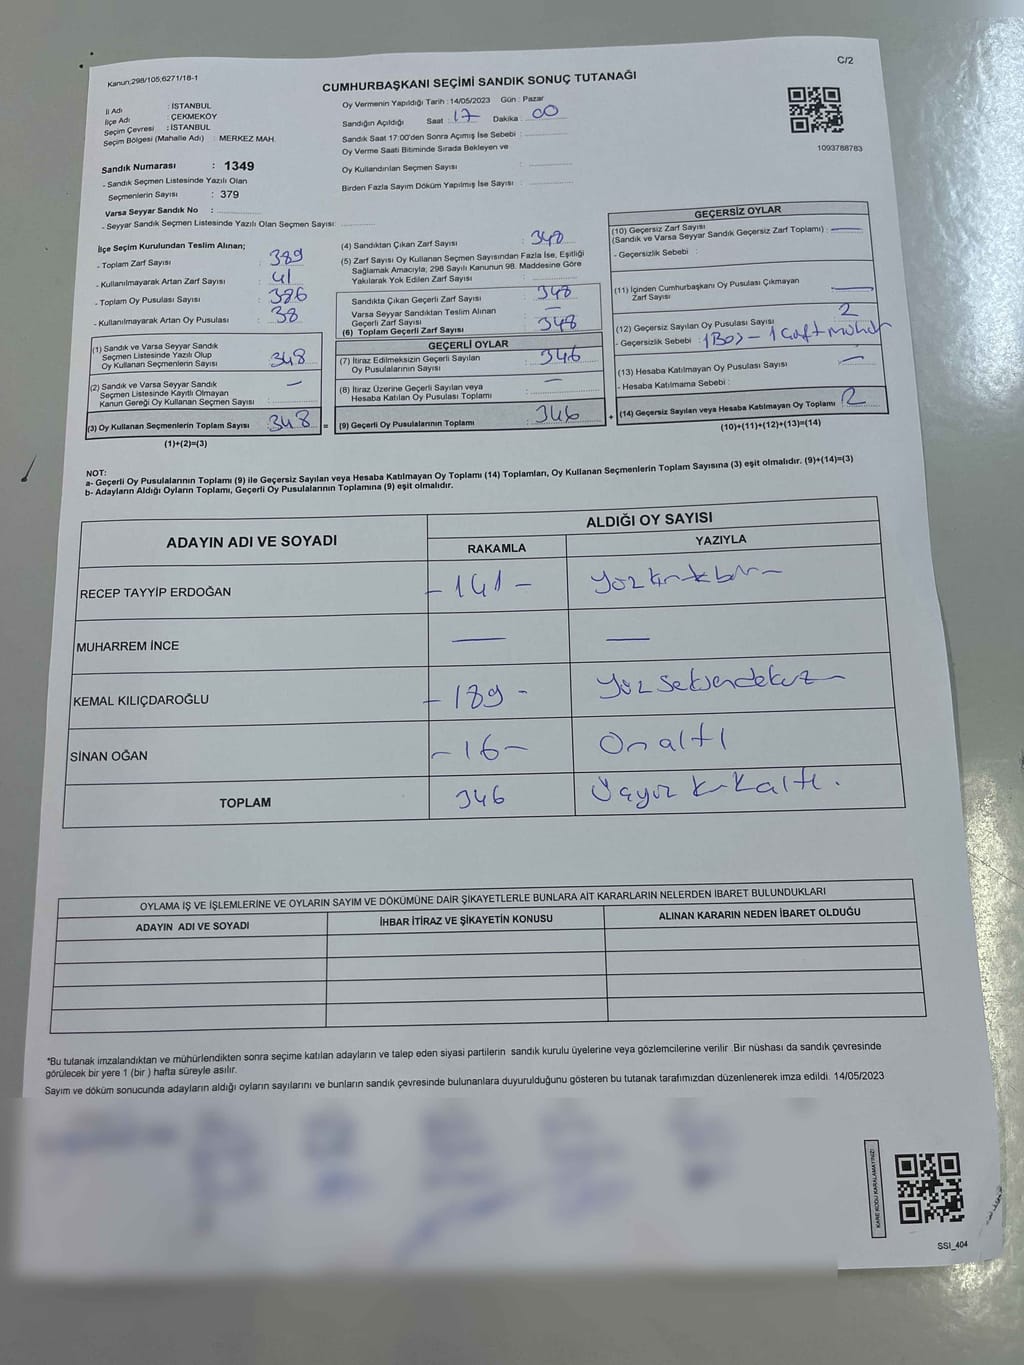 Kanun;298/105;6271/18-1
C/2
CUMHURBAŞKANI SEÇİMİ SANDIK SONUÇ TUTANAĞI
İl Adı : İSTANBUL
İlçe Adı : ÇEKMEKÖY
Seçim Çevresi : İSTANBUL
Seçim Bölgesi (Mahalle Adı) : MERKEZ MAH.
Sandık Numarası : 1349
- Sandık Seçmen Listesinde Yazılı Olan
Seçmenlerin Sayısı : 379
Varsa Seyyar Sandık No :
- Seyyar Sandık Seçmen Listesinde Yazılı Olan Seçmen Sayısı:
Oy Vermenin Yapıldığı Tarih : 14/05/2023 Gün : Pazar
Sandığın Açıldığı Saat : 17 Dakika : 00
Sandık Saat 17:00'den Sonra Açımış İse Sebebi :
Oy Verme Saati Bitiminde Sırada Bekleyen ve
Oy Kullandırılan Seçmen Sayısı :
Birden Fazla Sayım Döküm Yapılmış İse Sayısı :
1093788783
İlçe Seçim Kurulundan Teslim Alınan;
- Toplam Zarf Sayısı : 389
- Kullanılmayarak Artan Zarf Sayısı : 41
- Toplam Oy Pusulası Sayısı : 386
- Kullanılmayarak Artan Oy Pusulası : 38
(1) Sandık ve Varsa Seyyar Sandık
Seçmen Listesinde Yazılı Olup
Oy Kullanan Seçmenlerin Sayısı : 348
(2) Sandık ve Varsa Seyyar Sandık
Seçmen Listesinde Kayıtlı Olmayan
Kanun Gereği Oy Kullanan Seçmen Sayısı : —
(3) Oy Kullanan Seçmenlerin Toplam Sayısı : 348 =
(1)+(2)=(3)
(4) Sandıktan Çıkan Zarf Sayısı : 348
(5) Zarf Sayısı Oy Kullanan Seçmen Sayısından Fazla İse, Eşitliği
Sağlamak Amacıyla; 298 Sayılı Kanunun 98. Maddesine Göre
Yakılarak Yok Edilen Zarf Sayısı :
Sandıkta Çıkan Geçerli Zarf Sayısı : 348
Varsa Seyyar Sandıktan Teslim Alınan
Geçerli Zarf Sayısı : —
(6) Toplam Geçerli Zarf Sayısı : 348
GEÇERLİ OYLAR
(7) İtiraz Edilmeksizin Geçerli Sayılan
Oy Pusulalarının Sayısı : 346
(8) İtiraz Üzerine Geçerli Sayılan veya
Hesaba Katılan Oy Pusulası Toplamı : —
(9) Geçerli Oy Pusulalarının Toplamı : 346 +
GEÇERSİZ OYLAR
(10) Geçersiz Zarf Sayısı
(Sandık ve Varsa Seyyar Sandık Geçersiz Zarf Toplamı) : —
- Geçersizlik Sebebi :
(11) İçinden Cumhurbaşkanı Oy Pusulası Çıkmayan
Zarf Sayısı : —
(12) Geçersiz Sayılan Oy Pusulası Sayısı : 2
- Geçersizlik Sebebi : 1 Boş - 1 Çift mühür
(13) Hesaba Katılmayan Oy Pusulası Sayısı : —
- Hesaba Katılmama Sebebi :
(14) Geçersiz Sayılan veya Hesaba Katılmayan Oy Toplamı : 2
(10)+(11)+(12)+(13)=(14)
NOT:
a- Geçerli Oy Pusulalarının Toplamı (9) ile Geçersiz Sayılan veya Hesaba Katılmayan Oy Toplamı (14) Toplamları, Oy Kullanan Seçmenlerin Toplam Sayısına (3) eşit olmalıdır. (9)+(14)=(3)
b- Adayların Aldığı Oyların Toplamı, Geçerli Oy Pusulalarının Toplamına (9) eşit olmalıdır.
ADAYIN ADI VE SOYADI
ALDIĞI OY SAYISI
RAKAMLA YAZIYLA
RECEP TAYYİP ERDOĞAN - 141 - Yüz kırkbir
MUHARREM İNCE — —
KEMAL KILIÇDAROĞLU - 189 - Yüz seksendokuz
SİNAN OĞAN - 16 - Onaltı
TOPLAM 346 Üçyüz kırkaltı.
OYLAMA İŞ VE İŞLEMLERİNE VE OYLARIN SAYIM VE DÖKÜMÜNE DAİR ŞİKAYETLERLE BUNLARA AİT KARARLARIN NELERDEN İBARET BULUNDUKLARI
ADAYIN ADI VE SOYADI İHBAR İTİRAZ VE ŞİKAYETİN KONUSU ALINAN KARARIN NEDEN İBARET OLDUĞU
*Bu tutanak imzalandıktan ve mühürlendikten sonra seçime katılan adayların ve talep eden siyasi partilerin sandık kurulu üyelerine veya gözlemcilerine verilir .Bir nüshası da sandık çevresinde
görülecek bir yere 1 (bir ) hafta süreyle asılır.
Sayım ve döküm sonucunda adayların aldığı oyların sayılarını ve bunların sandık çevresinde bulunanlara duyurulduğunu gösteren bu tutanak tarafımızdan düzenlenerek imza edildi. 14/05/2023
KARE KODU KARALAMAYINIZ!
SSI_404